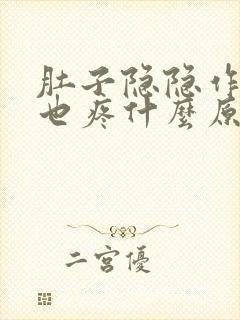 肚子隐隐作
也疼什麼原
二宫優